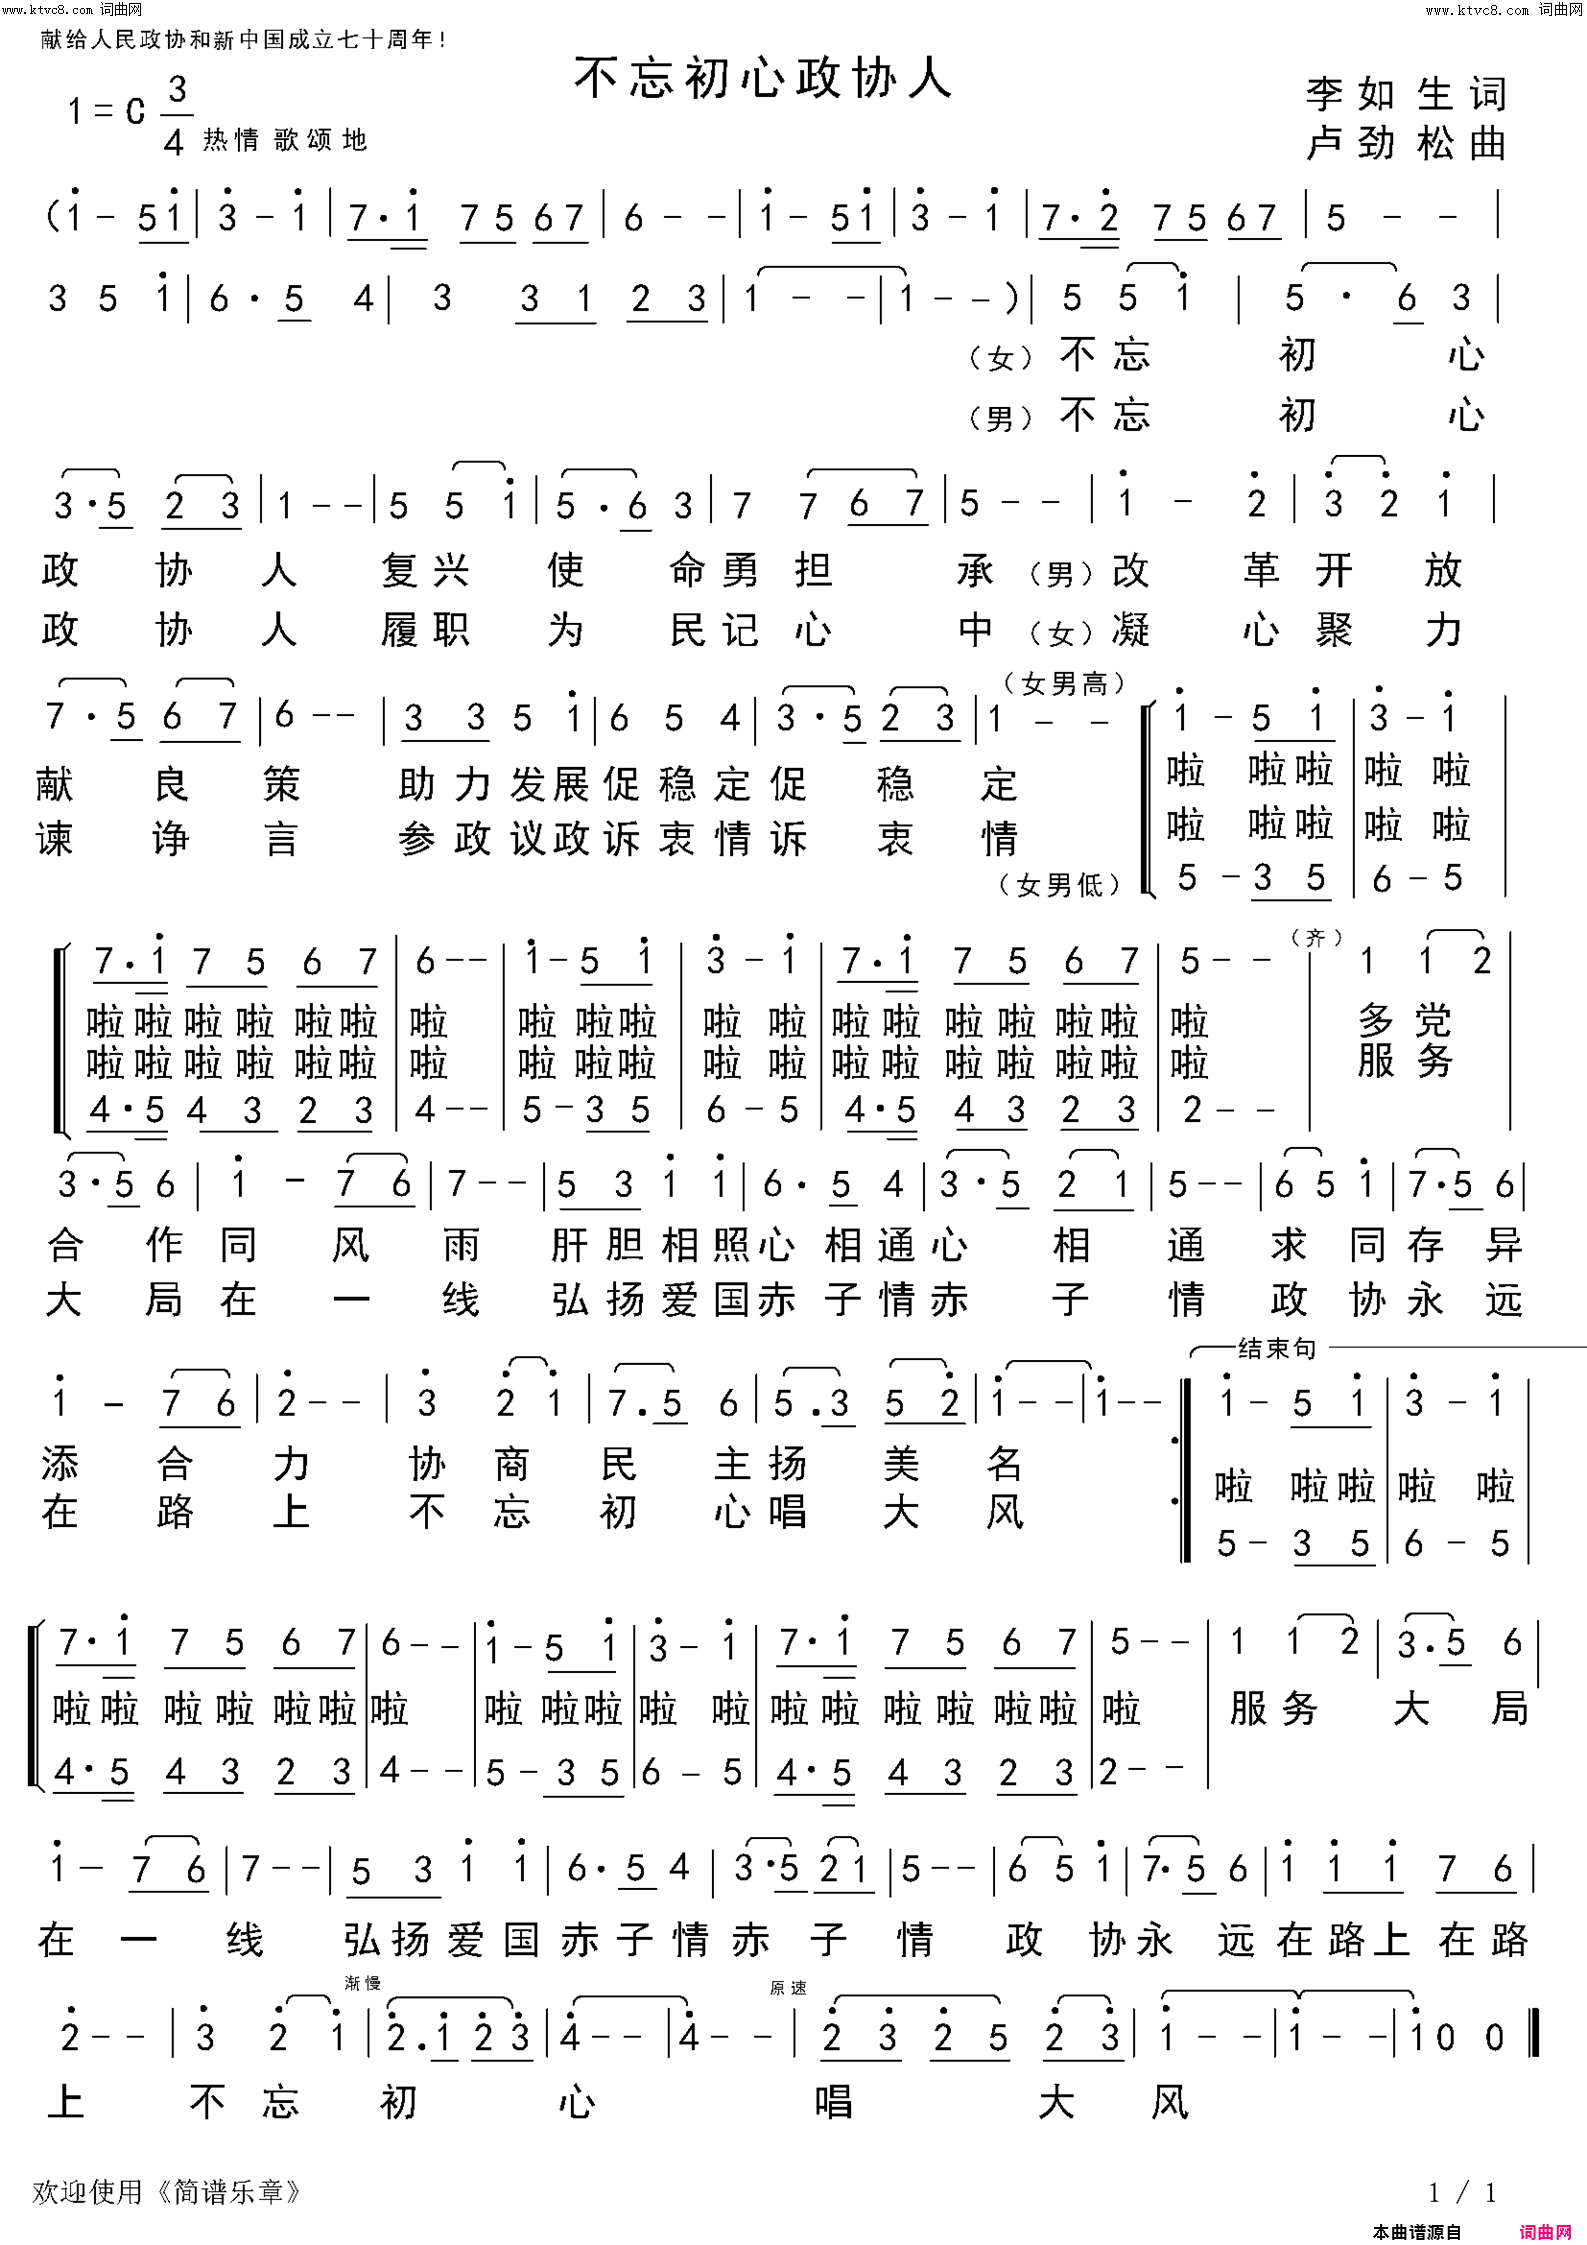 www.ktvc8.com 词曲网 www.ktvc8.com 词曲网
献给人民政协和新中国成立七十周年！
不忘初心政协人
1=C 3/4 热情 歌颂 地
李如生词
卢劲松曲
(i - 5i | 3̇ - i | 7·i 75 67 | 6 - - | i - 5i | 3̇ - i | 7·2̇ 75 67 | 5 - - |
3 5 i | 6·5 4 | 3 31 23 | 1 - - | 1 - - ) | 5 5 i | 5·6 3 |
（女）不忘 初 心
（男）不忘 初 心
3·5 23 | 1 - - | 5 5 i | 5·6 3 | 7 7 67 | 5 - - | i - 2̇ | 3̇ 2̇ i |
政 协 人 复兴 使 命勇担 承（男）改 革开 放
政 协 人 履职 为 民记心 中（女）凝 心聚 力
7·5 67 | 6 - - | 33 5 i | 6 5 4 | 3·5 23 | 1 - - | （女男高） i - 5i | 3̇ - i |
献 良 策 助力发展促稳定促 稳 定 啦 啦啦 啦 啦
谏 诤 言 参政议政诉衷情诉 衷 情 啦 啦啦 啦 啦
（女男低） 5 - 35 | 6 - 5 |
7·i 75 67 | 6 - - | i - 5i | 3̇ - i | 7·i 75 67 | 5 - - | （齐） 1 1 2 |
啦啦啦啦啦啦 啦 啦 啦啦 啦 啦 啦啦 啦啦 啦啦 啦 多 党
啦啦啦啦啦啦 啦 啦 啦啦 啦 啦 啦啦 啦啦 啦啦 啦 服 务
4·5 43 23 | 4 - - | 5 - 35 | 6 - 5 | 4·5 43 23 | 2 - - |
3·5 6 | i - 76 | 7 - - | 53 i i | 6·5 4 | 3·5 21 | 5 - - | 6 5 i | 7·5 6 |
合 作 同 风 雨 肝胆相照心相通心 相 通 求 同存 异
大 局 在 一 线 弘扬爱国赤子情赤 子 情 政 协永 远
结束句
i - 76 | 2̇ - - | 3̇ 2̇ i | 7.5 6 | 5.3 52̇ | i - - | i - - :| i - 5i | 3̇ - i |
添 合 力 协 商 民 主扬 美 名 啦 啦啦 啦 啦
在 路 上 不 忘 初 心唱 大 风
5 - 35 | 6 - 5 |
7·i 75 67 | 6 - - | i - 5i | 3̇ - i | 7·i 75 67 | 5 - - | 1 1 2 | 3.5 6 |
啦啦 啦啦 啦啦 啦 啦 啦啦 啦 啦 啦啦 啦啦 啦啦 啦 服务 大 局
4·5 43 23 | 4 - - | 5 - 35 | 6 - 5 | 4·5 43 23 | 2 - - |
i - 76 | 7 - - | 53 i i | 6·5 4 | 3·5 21 | 5 - - | 6 5 i | 7·5 6 | i i i 76 |
在 一 线 弘扬爱国赤子情赤 子 情 政 协永 远在路上在路
渐慢 原速
2̇ - - | 3̇ 2̇ i | 2̇.i 2̇3̇ | 4̇ - - | 4̇ - - | 2̇3̇ 2̇5 2̇3̇ | i - - | i - - | i 0 0 ‖
上 不 忘 初 心 唱 大 风
欢迎使用《简谱乐章》 1 / 1
本曲谱源自 词曲网